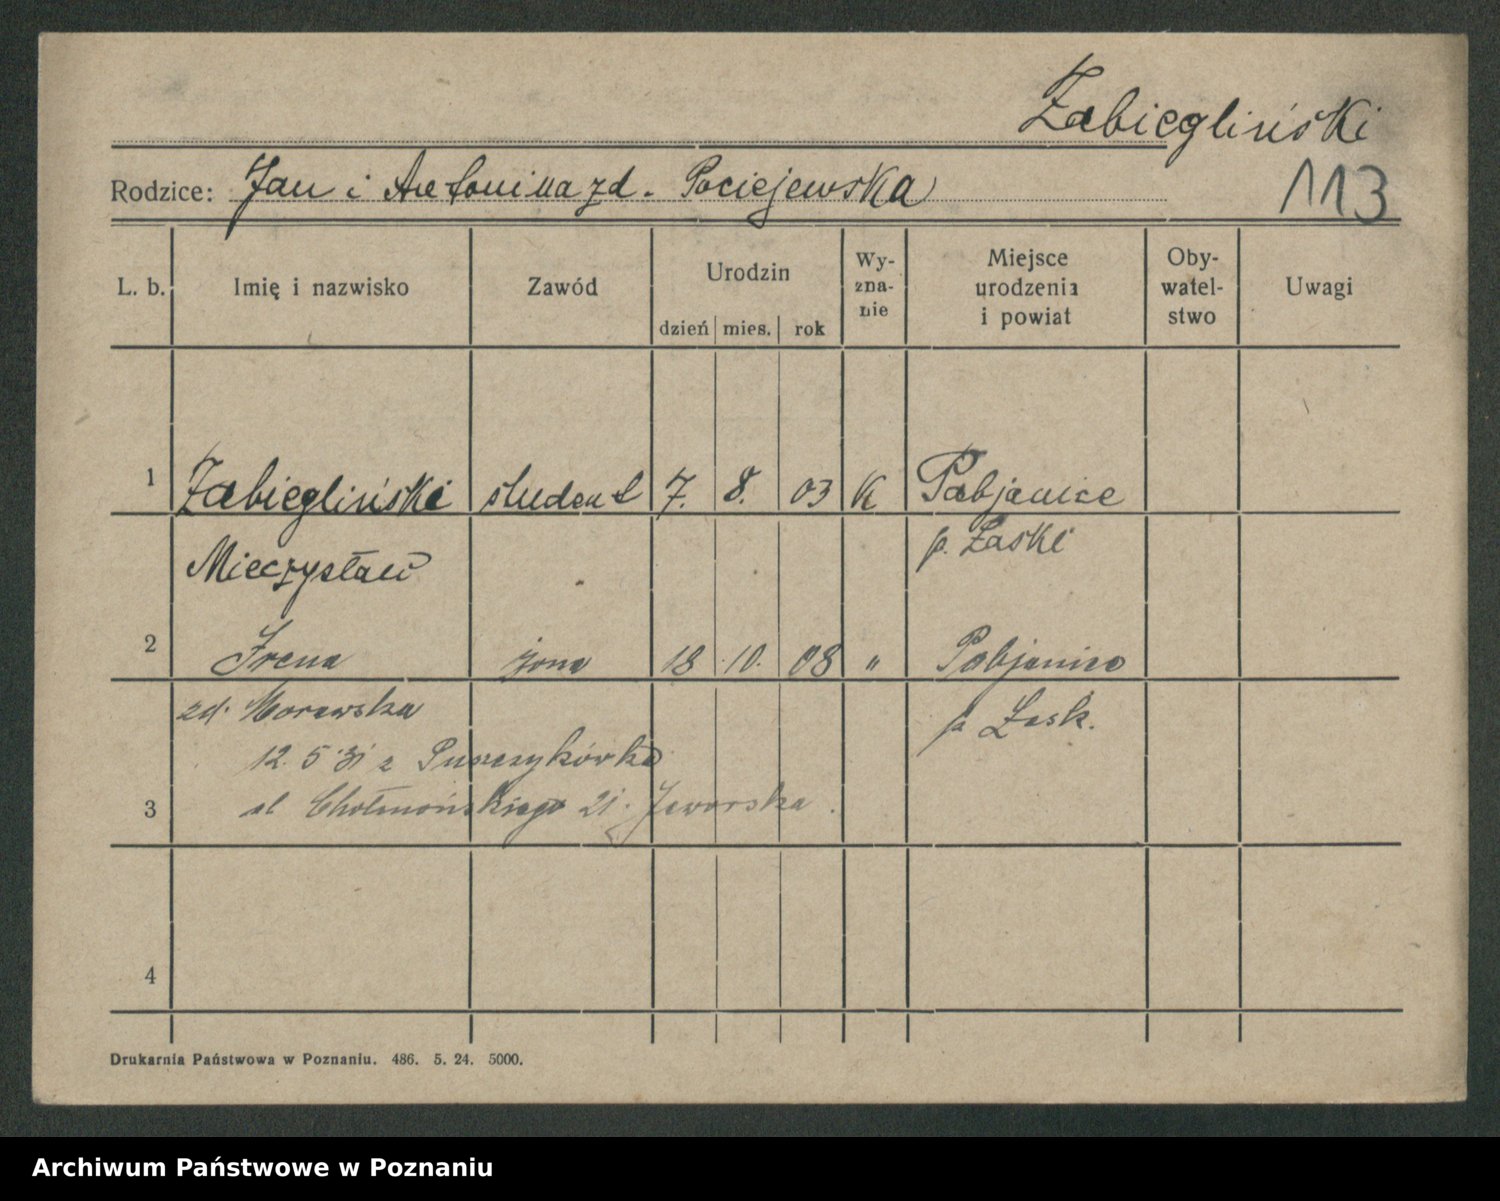 Zabiegliński
Rodzice: Jan i Antonina zd. Pociejewska
113
L. b. Imię i nazwisko Zawód Urodzin dzień mies. rok Wy-zna-nie Miejsce urodzenia i powiat Oby-watel-stwo Uwagi
1 Zabiegliński student 7. 8. 03 K Pabjanice
Mieczysław p. Łaski
2 Irena żona 18 10. 08 " Pabjanice
zd. Morawska p. Łask.
12. 5. 31 z Puszczykówka
3 ul Chełmońskiego 21. Jaworska.
4
Drukarnia Państwowa w Poznaniu. 486. 5. 24. 5000.
Archiwum Państwowe w Poznaniu